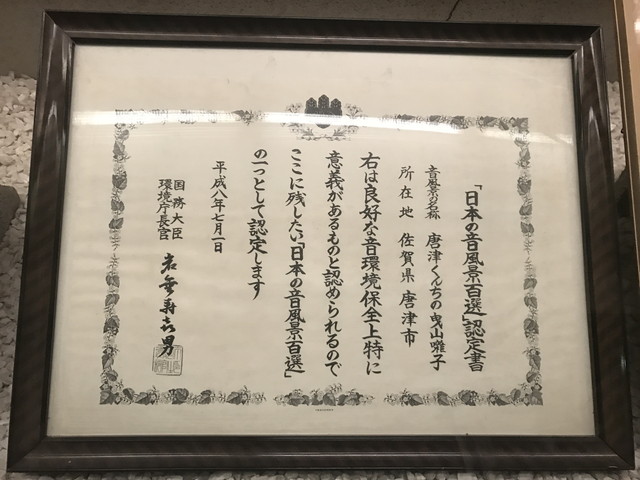 「日本の音風景百選」認定書
音風景の名称 唐津くんちの曳山囃子
所在地 佐賀県 唐津市
右は良好な音環境保全上特に
意義があるものと認められるので
ここに残したい「日本の音風景百選」
の一つとして認定します
平成八年七月一日
国務大臣
環境庁長官 岩垂寿喜男